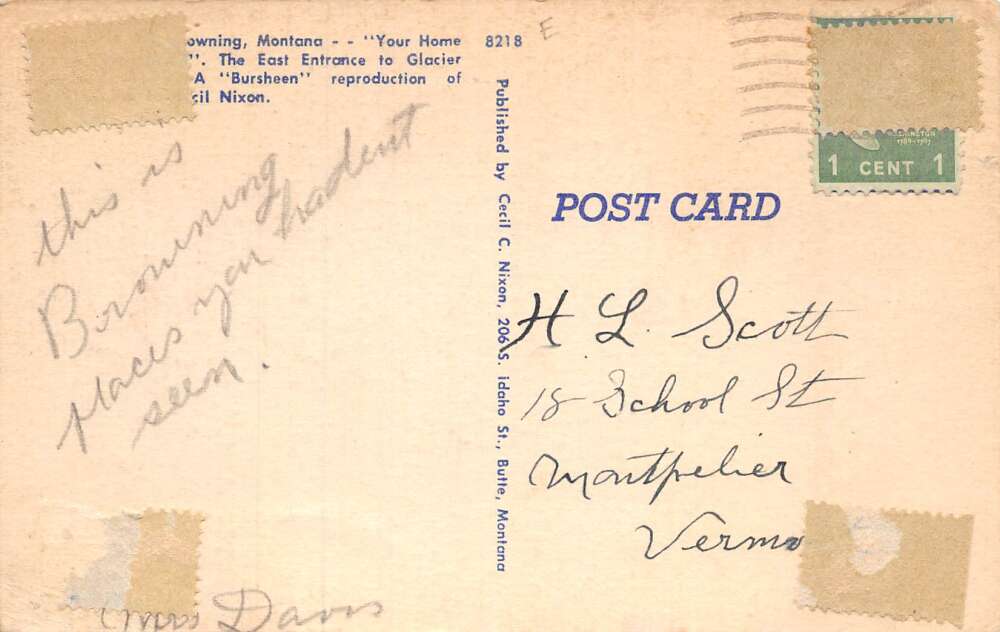 owning, Montana - - "Your Home
". The East Entrance to Glacier
A "Bursheen" reproduction of
cil Nixon.
8218
E
this is
Browning
places you hadent
seen.
Mrs Davis
Published by Cecil C. Nixon, 206 S. Idaho St., Butte, Montana
1 CENT 1
POST CARD
H L. Scott
18 School St
Montpelier
Vermo